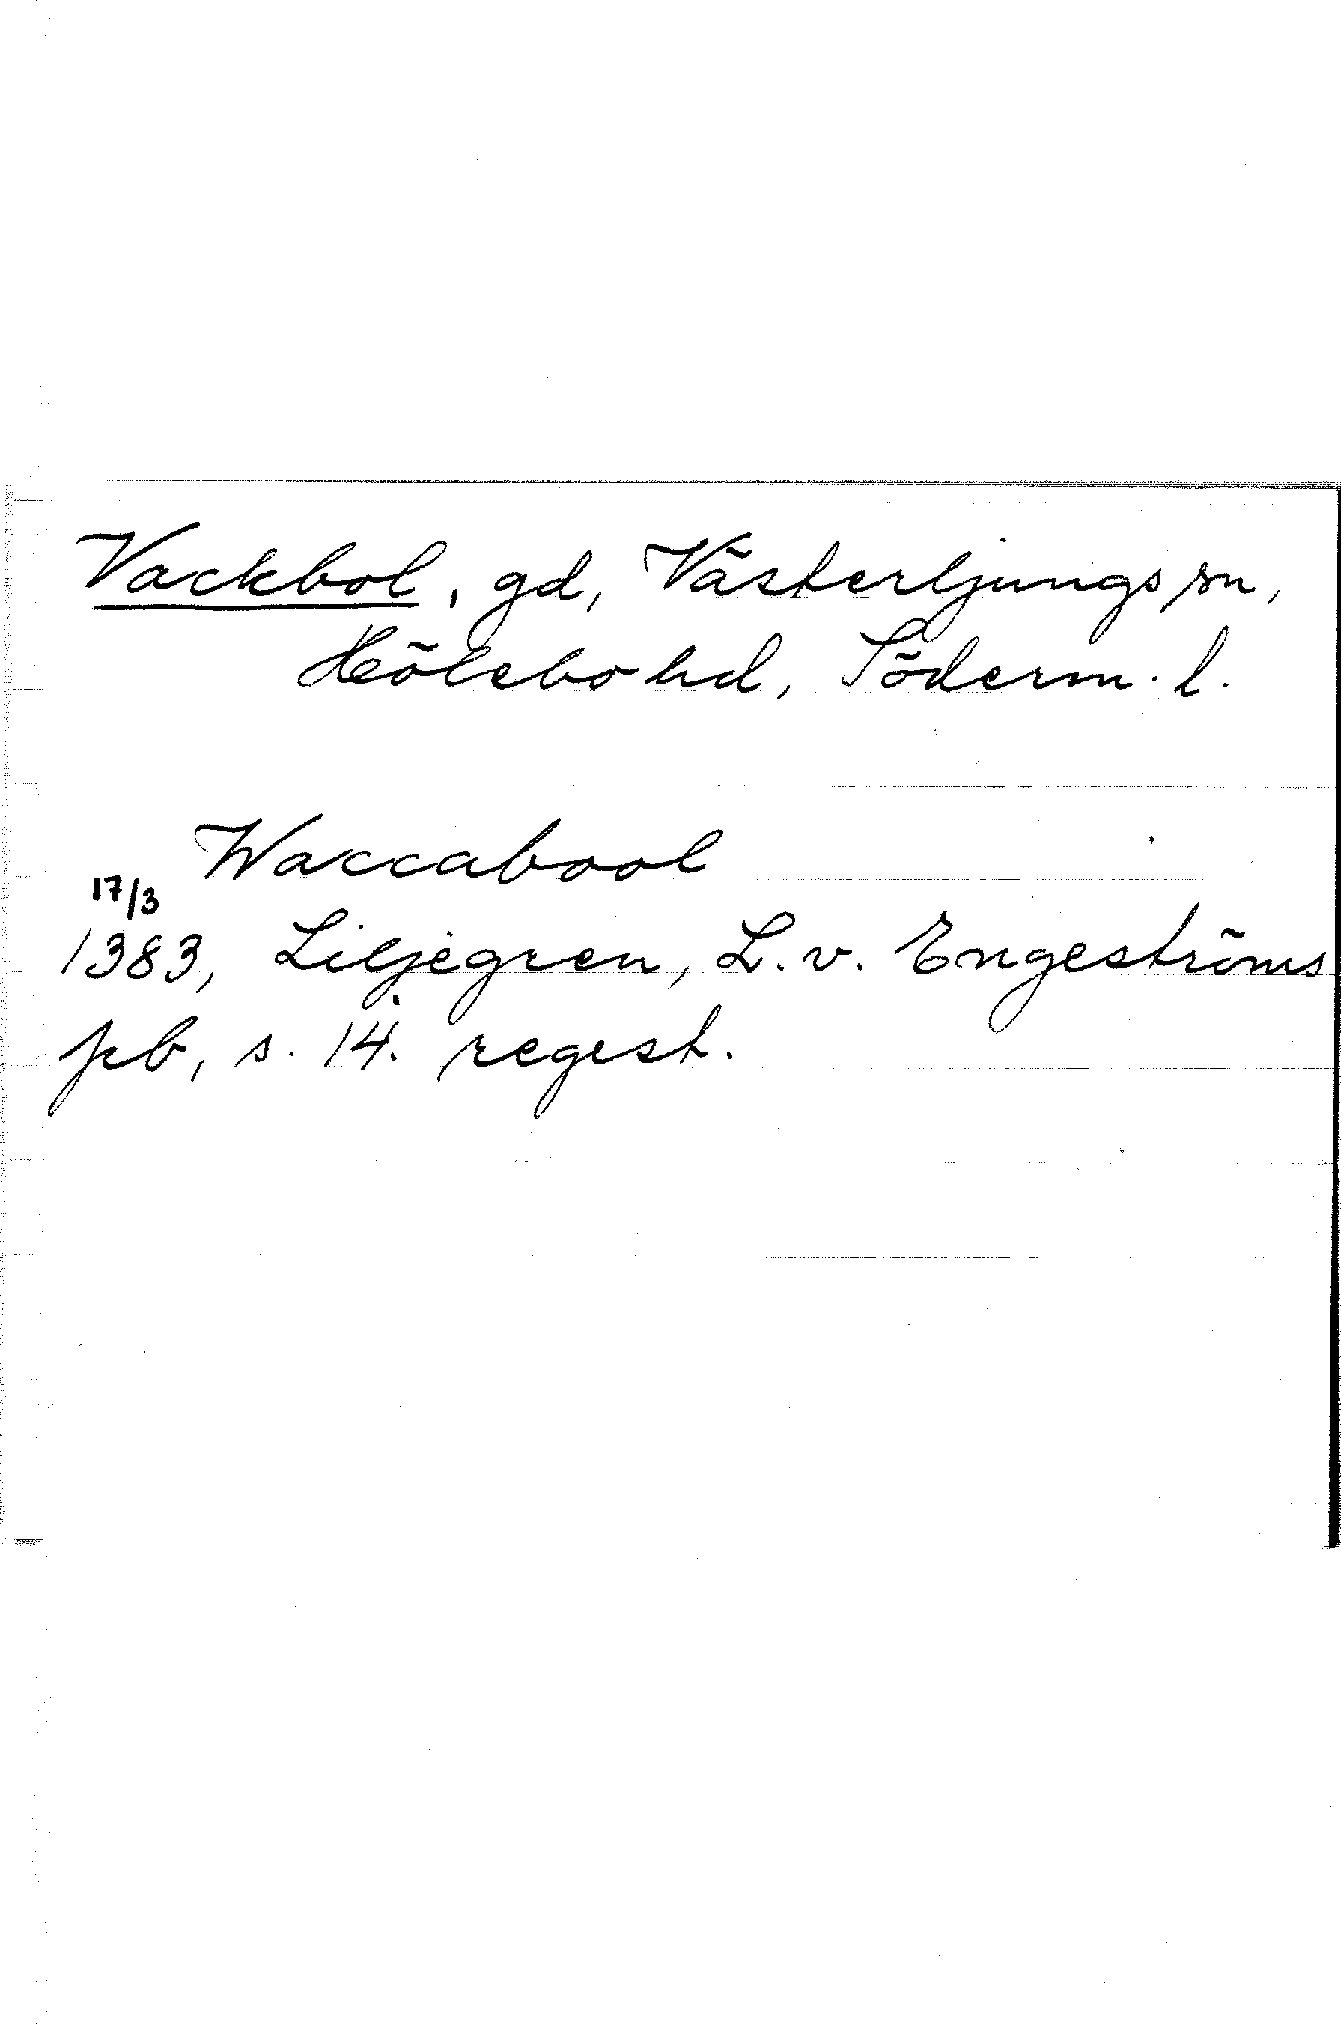 Vackbol, gd, Västerljungs sn,
Hölebo hd, Söderm. l.
Waccabool
17/3
1383, Liljegren, L. v. Engeströms
pb, s. 14. regest.